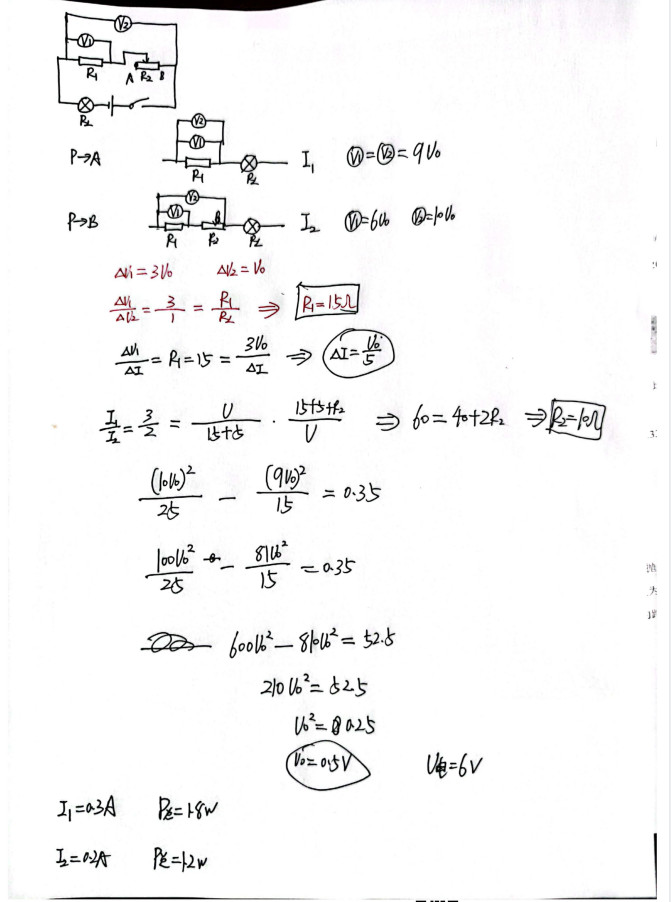 V₂
V₁
R₁ A R₂ B
R_L
P→A V₂ V₁ R₁ R_L I₁ V₁=V₂=9U₀
P→B V₂ V₁ R₁ R₂ B R_L I₂ V₁=6U₀ V₂=10U₀
ΔV₁=3U₀ ΔV₂=U₀
ΔV₁/ΔV₂ = 3/1 = R₁/R_L ⇒ R₁=15Ω
ΔV₁/ΔI = R₁=15 = 3U₀/ΔI ⇒ ΔI=U₀/5
I₁/I₂ = 3/2 = U/(15+5) · (15+5+R₂)/U ⇒ 60=40+2R₂ ⇒ R₂=10Ω
(10U₀)²/25 − (9U₀)²/15 = 0.35
100U₀²/25 − 81U₀²/15 = 0.35
600U₀²−810U₀²=52.5
210U₀²=52.5
U₀²=0.25
U₀=0.5V U电=6V
I₁=0.3A P总=1.8W
I₂=0.2A P总=1.2W